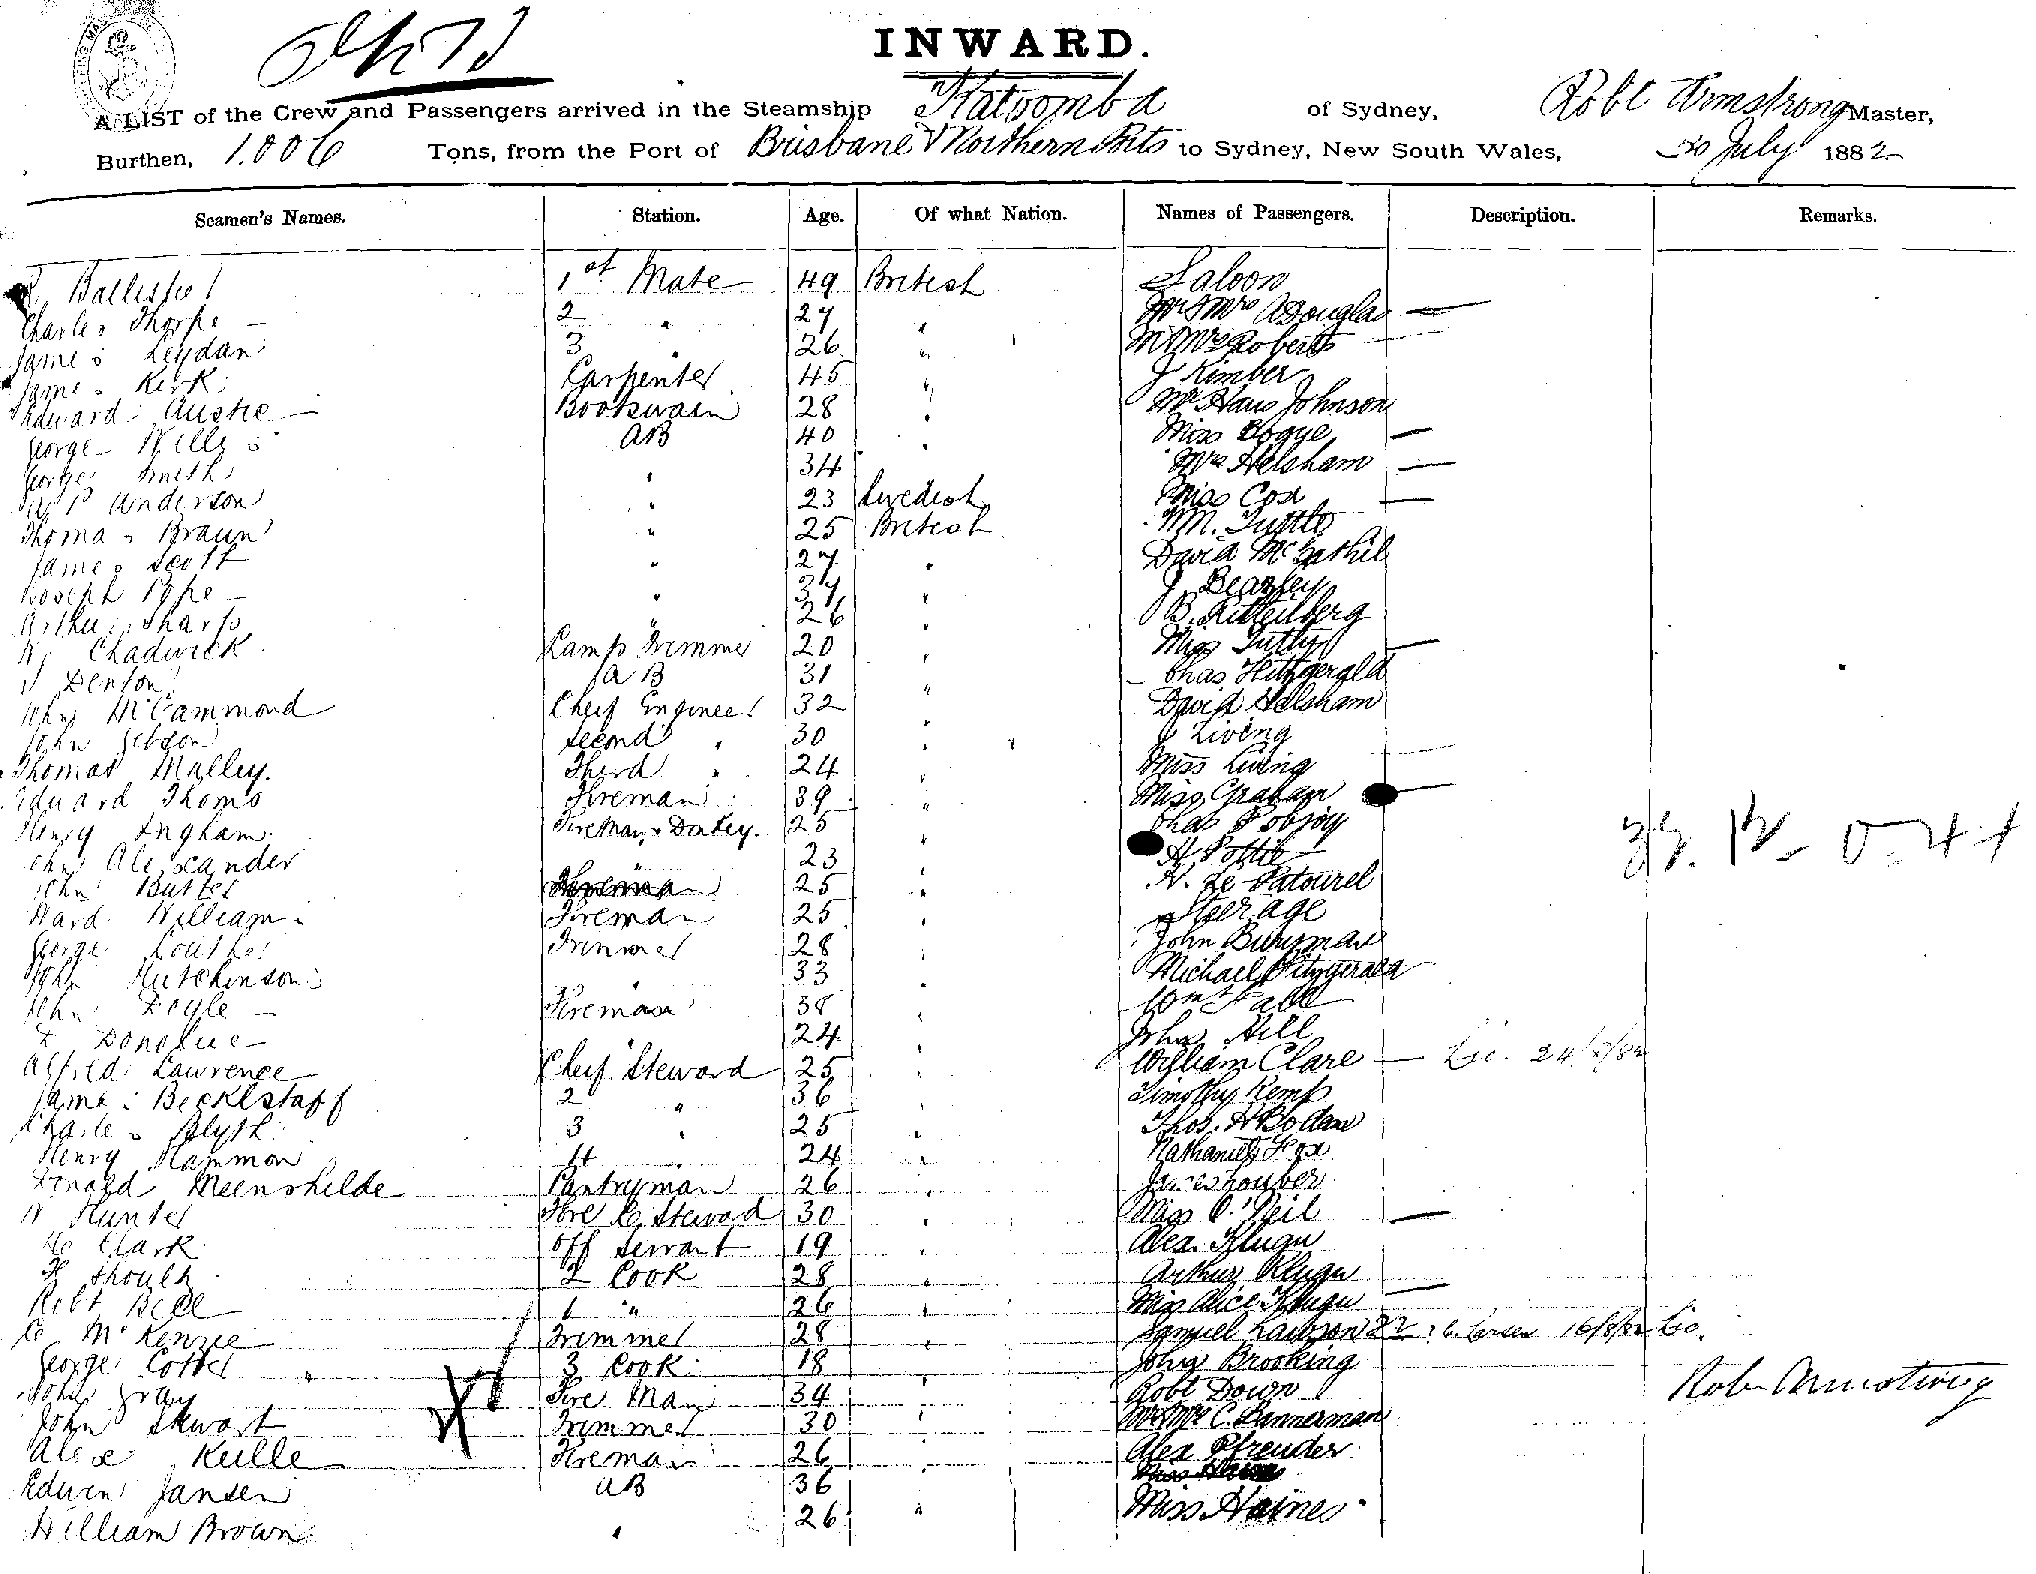 INWARD.
A LIST of the Crew and Passengers arrived in the Steamship Katoomba of Sydney, Robt Armstrong Master,
Burthen, 1.006 Tons, from the Port of Brisbane & Northern Pts to Sydney, New South Wales, 20 July 1882
Seamen's Names. Station. Age. Of what Nation. Names of Passengers. Description. Remarks.
1st Mate 49 British Saloon
Charles Thorpe 2 " 27 " Mr & Mrs Douglas
James Leydan 3 " 26 " Mr & Mrs Roberts
James Kirk Carpenter 45 " J Kimber
Edward Austie Bootswain 28 " Mr Hans Johnson
George Wells AB 40 " Miss Bogue
George Smith " 34 Mrs Helsham
P Anderson " 23 Swedish Miss Cox
Thomas Braun " 25 British Wm. Tuttle
James Scott " 27 " David
Joseph Pope " 37 " J Beazley
Arthur Sharp " 26 " B.
W Chadwick Lamp Trimmer 20 " Miss Tutty
Denton AB 31 " Chas Fittzgerald
John McCammond Cheif Engineer 32 " David Helsham
John Gibson Second " 30 " J Living
Thomas Malley. Third " 24 " Miss Living
Edward Thoms Fireman 39 " Miss Graham
Henry Ingham Fireman & Donkey. 25 " Chas Pobjoy
John Alexander " 23 A Pottie
John Butter Fireman 25 " Le Patourel
Ward William Fireman 25 " Steerage
George Trimmer 28 " John
John Hutchinson " 33 " Michael Fitzgerald
John Doyle Fireman 38 " Wm
Donohue " 24 " John Hill
Alfred Lawrence Cheif Steward 25 " William Clare
James Becklstaff 2 " 36 " Timothy Kemp
Charles Blyth 3 " 25 " Thos. H Bodan
Henry Hammon 4 " 24 " Nathaniel Fox
Donald Meenshilde Pantryman 26 "
W Hunter Fore C. Steward 30 " Miss O'Neil
Clark off servant 19 " Alex. Klugu
2 Cook 28 " Arthur Klugu
Robt Bell 1 " 26 " Miss Alice Klugu
McKenzie Trimmer 28 " Samuel Lawson 16/8/82
George Cotter 3 Cook 18 " John Brooking
John Gray Fire Man 34 " Robt Down
Robt Armstrong
John Stewart Trimmer 30 " Mr & Mrs C. Bannerman
Alex Keille Fireman 26 " Alex Pfreuder
Edwin Jansen AB 36
William Brown " 26 " Miss Haines